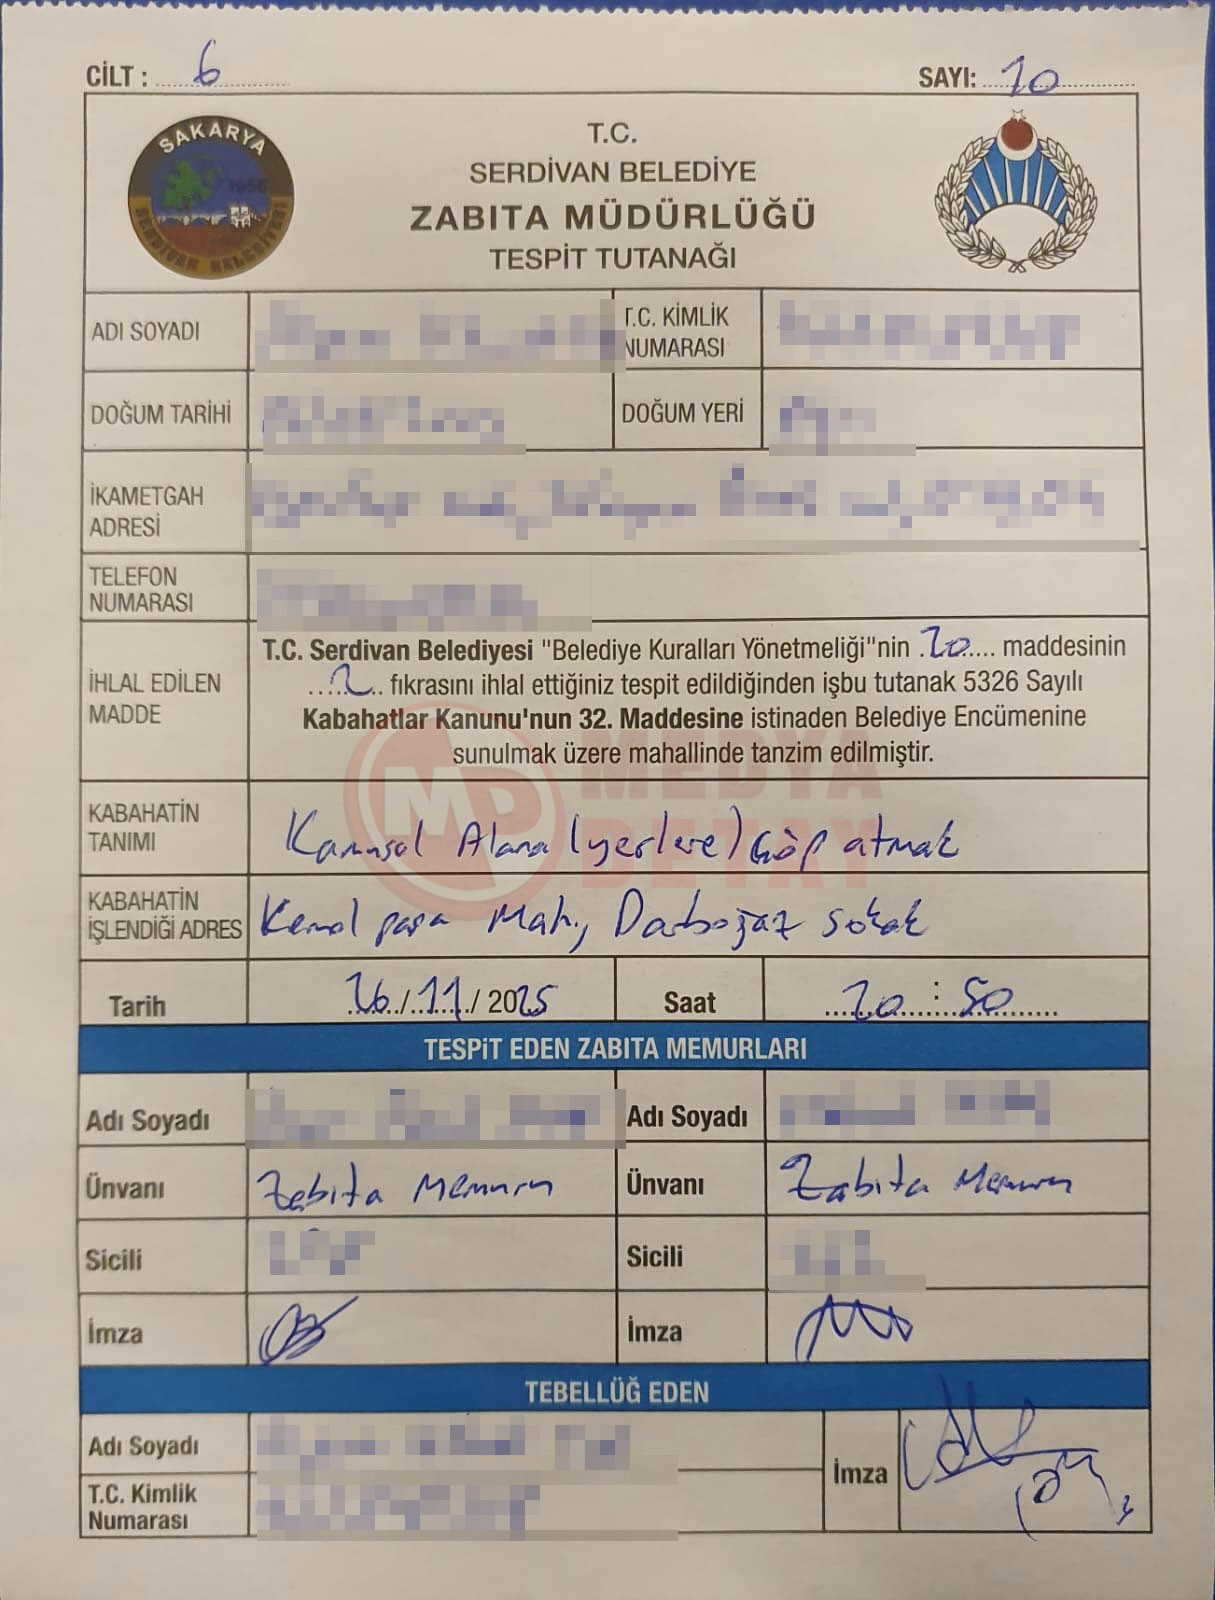 CİLT : 6 SAYI: 20
SAKARYA
1956
SERDİVAN BELEDİYESİ
T.C.
SERDİVAN BELEDİYE
ZABITA MÜDÜRLÜĞÜ
TESPİT TUTANAĞI
ADI SOYADI
T.C. KİMLİK
NUMARASI
DOĞUM TARİHİ
DOĞUM YERİ
İKAMETGAH
ADRESİ
TELEFON
NUMARASI
İHLAL EDİLEN
MADDE
T.C. Serdivan Belediyesi "Belediye Kuralları Yönetmeliği"nin 20 maddesinin
2 fıkrasını ihlal ettiğiniz tespit edildiğinden işbu tutanak 5326 Sayılı
Kabahatlar Kanunu'nun 32. Maddesine istinaden Belediye Encümenine
sunulmak üzere mahallinde tanzim edilmiştir.
MEDYA
DETAY
KABAHATİN
TANIMI
Kamusal Alana (yerlere) Çöp atmak
KABAHATİN
İŞLENDİĞİ ADRES
Kemal paşa Mah., Darboğaz sokak
Tarih 26/11/2025 Saat 20:50
TESPİT EDEN ZABITA MEMURLARI
Adı Soyadı Adı Soyadı
Ünvanı Zabıta Memuru Ünvanı Zabıta Memuru
Sicili Sicili
İmza İmza
TEBELLÜĞ EDEN
Adı Soyadı
İmza
T.C. Kimlik
Numarası